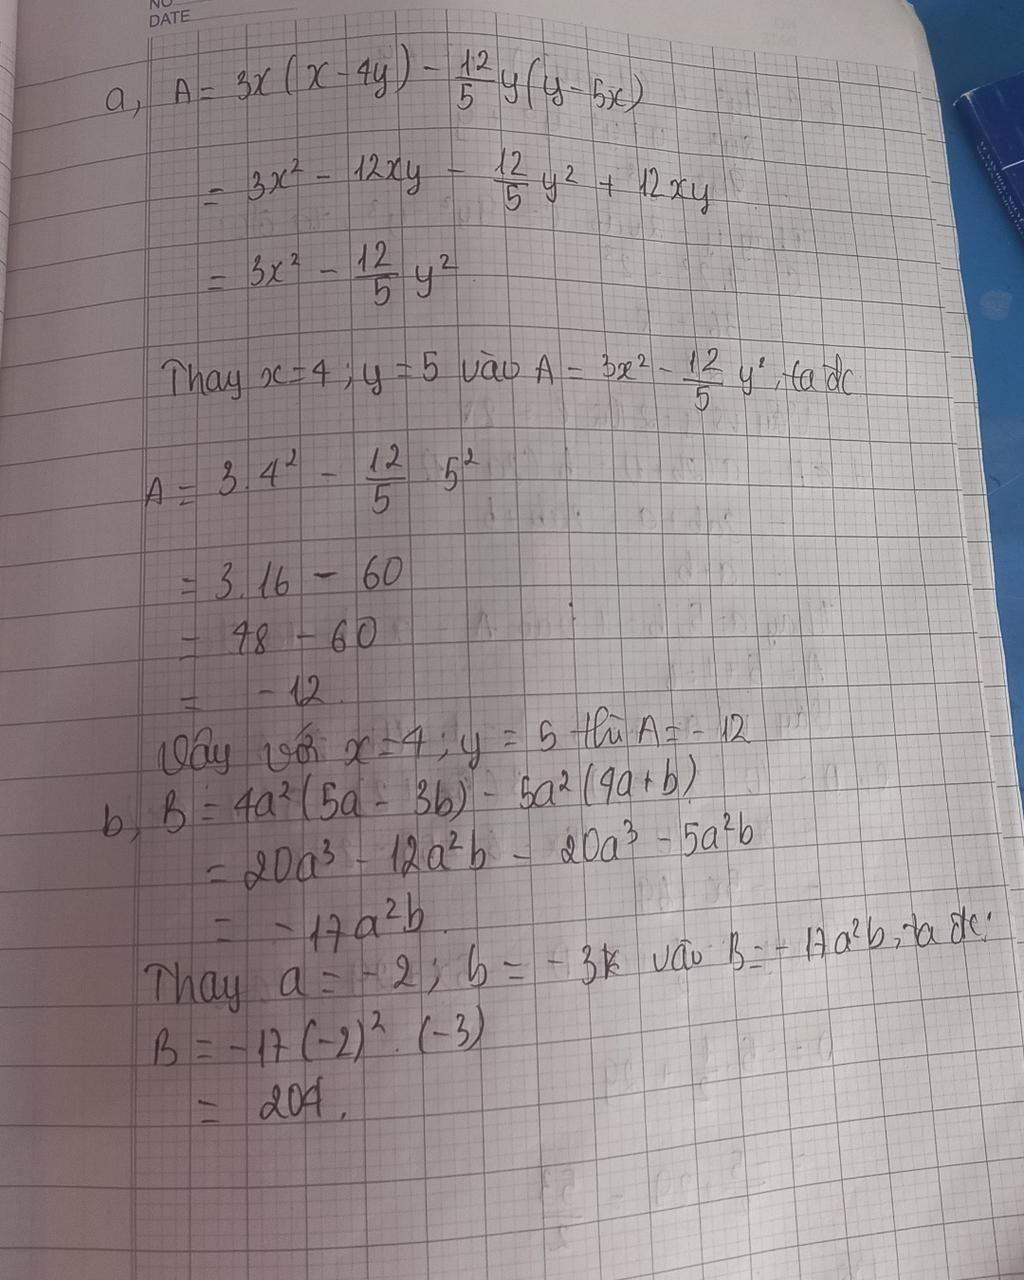 NO
DATE
a, A = 3x(x - 4y) - 12/5 y(y - 5x)
= 3x² - 12xy - 12/5 y² + 12xy
= 3x² - 12/5 y²
Thay x = 4 ; y = 5 vào A = 3x² - 12/5 y², ta đc
A = 3.4² - 12/5 5²
= 3.16 - 60
= 48 - 60
= -12.
Vậy với x = 4 ; y = 5 thì A = -12
b, B = 4a²(5a - 3b) - 5a²(4a + b)
= 20a³ - 12a²b - 20a³ - 5a²b
= -17a²b.
Thay a = -2 ; b = -3 vào B = -17a²b, ta đc:
B = -17(-2)².(-3)
= 204.